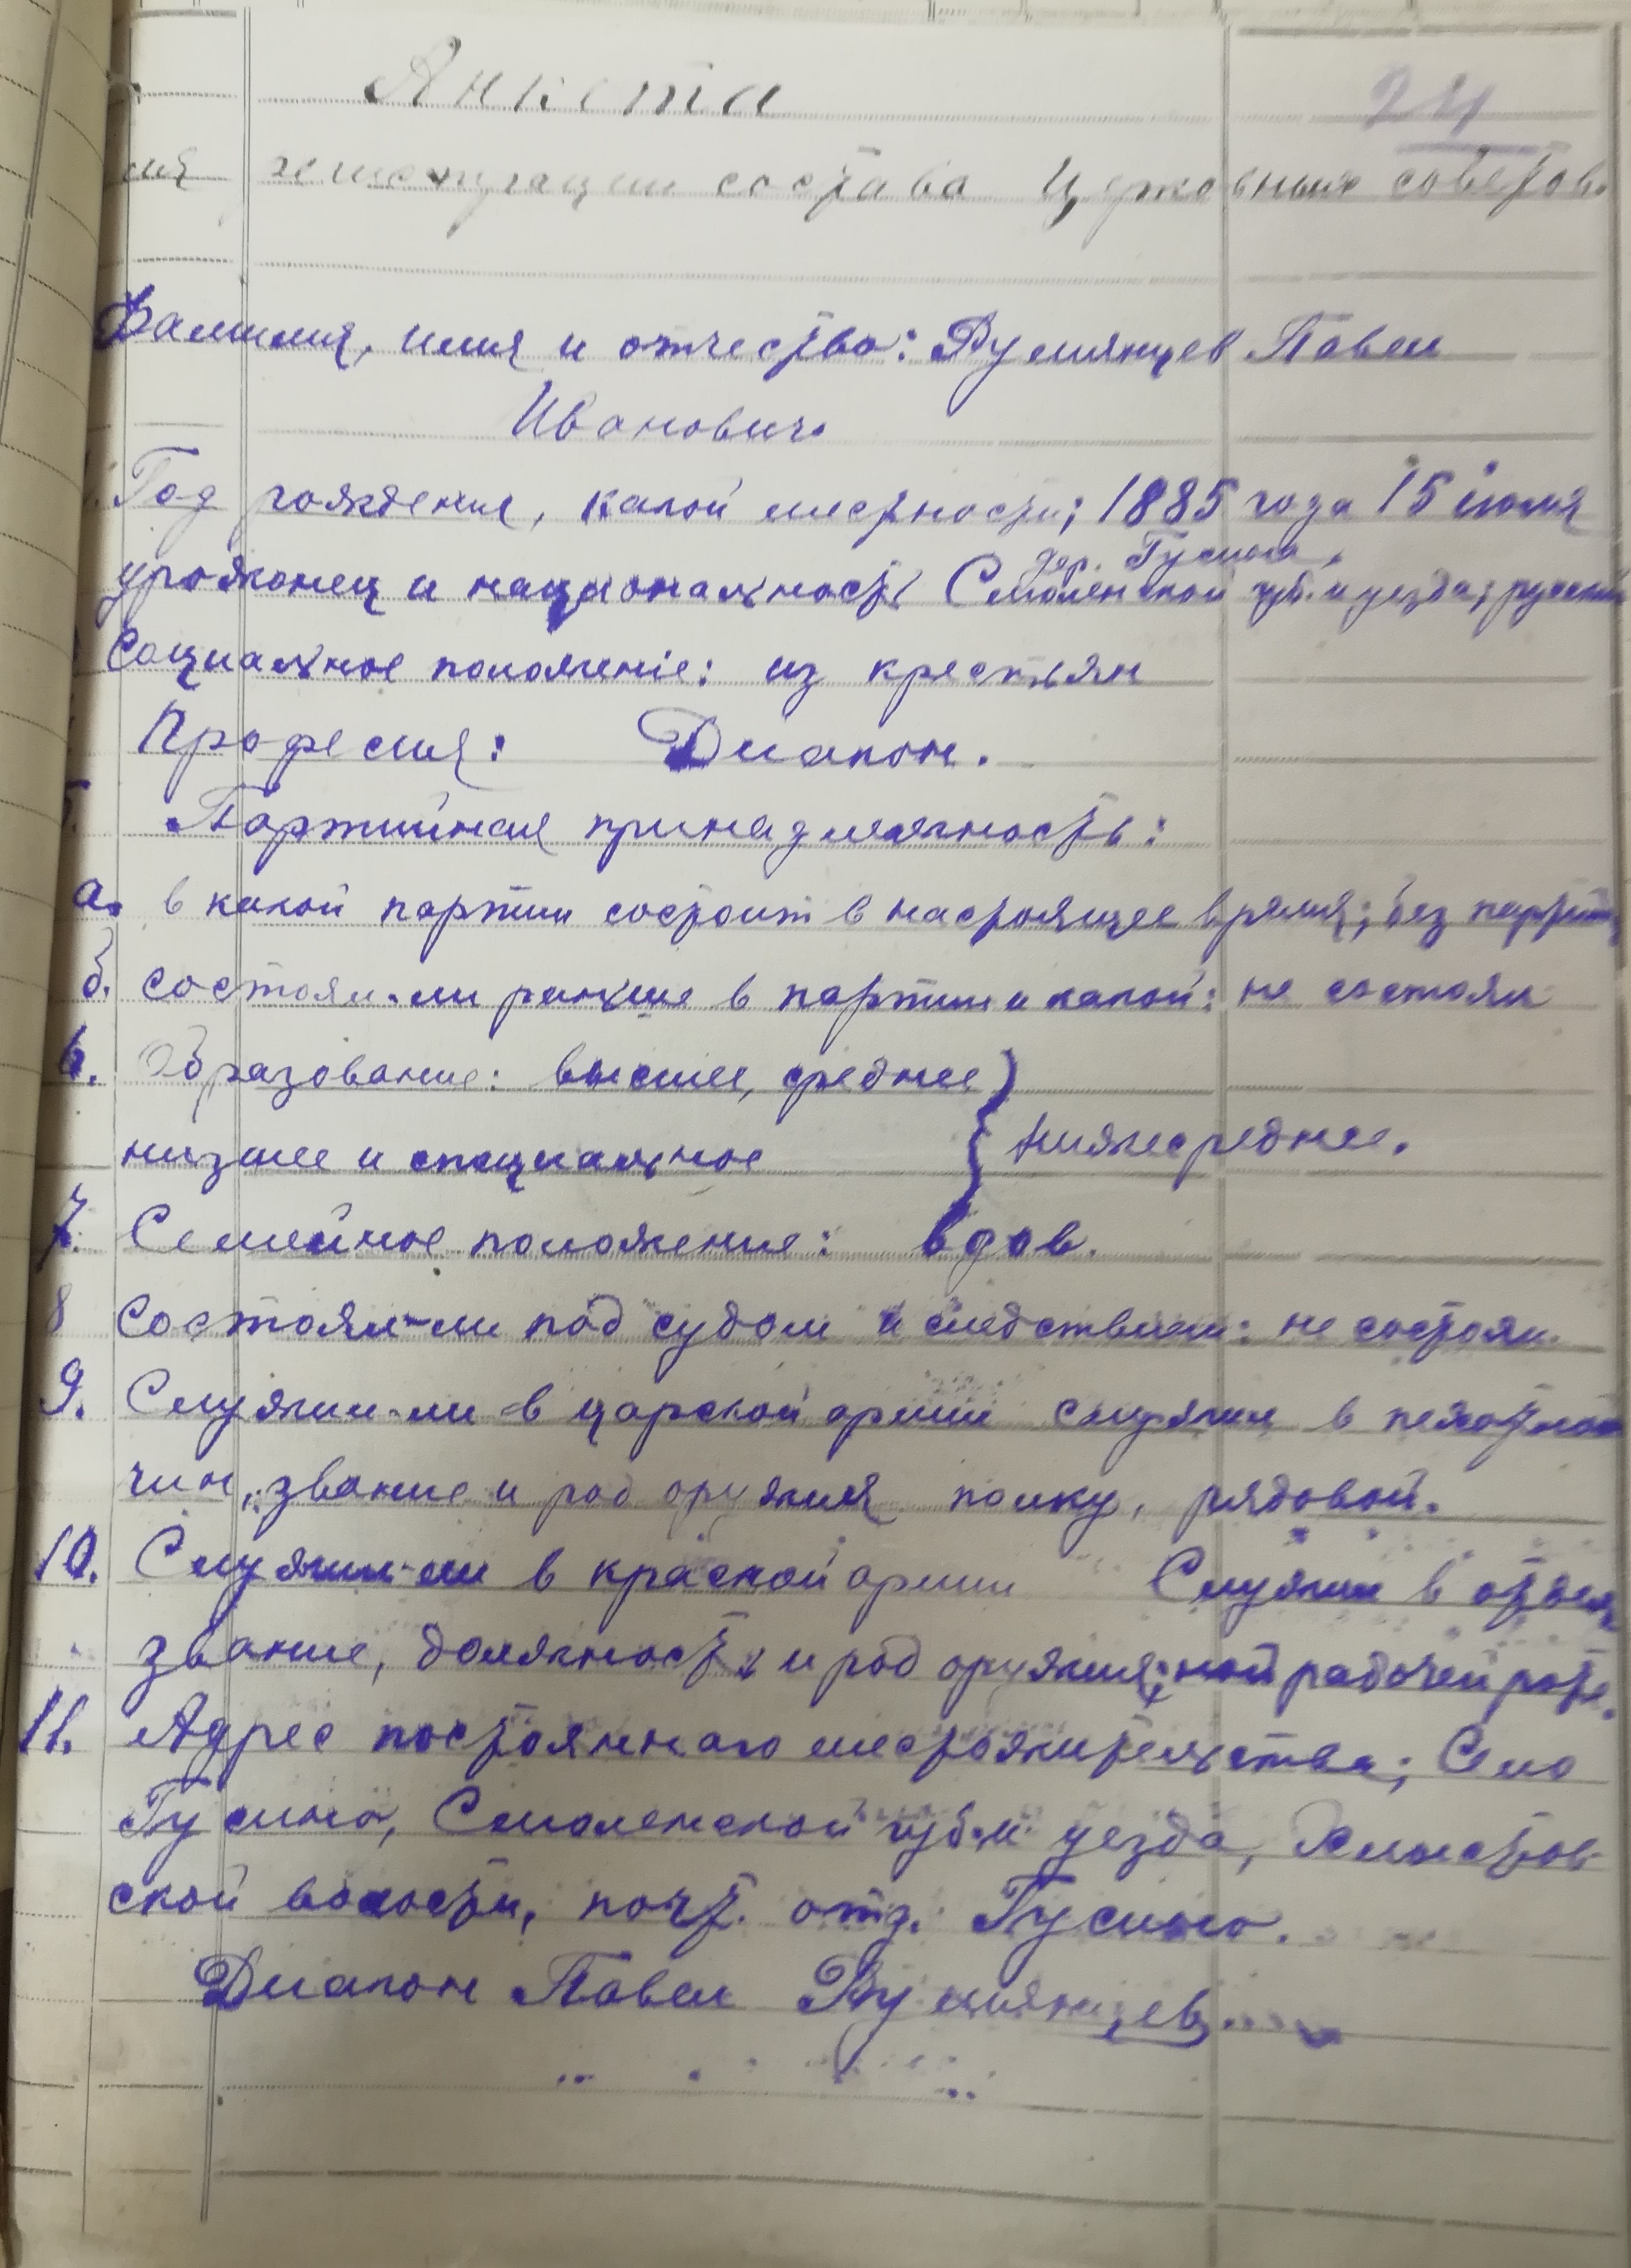 Анкета
24
регистрации состава Церковных советов.
Фамилия, имя и отчество: Румянцев Павел
Иванович.
Год рождения, какой местности; 1885 года 15 июля
дер. Гусина,
уроженец и национальность Смоленской губ. и уезда; русский
Социальное положеніе: из крестьян
Професия: Диакон.
Партийная принадлежность:
а. в какой партии состоит в настоящее время; без партий
б. состоял-ли раньше в партии и какой: не состоял
6. Образование: высшее, среднее
низшее и специальное } нижесреднее.
7. Семейное положение: вдов.
8 Состоял-ли под судом и следствием: не состоял.
9. Служил-ли в царской армии служил в пехотном
чин, звание и род оружия полку, рядовой.
10. Служил-ли в красной армии Служил в отдель
звание, должность и род оружия; ной рабочей роте.
11. Адрес постоянного местожительства; Село
Гусино, Смоленской губ. и уезда, Хлыстов-
ской волости, почт. отд. Гусино.
Диакон Павел Румянцев.